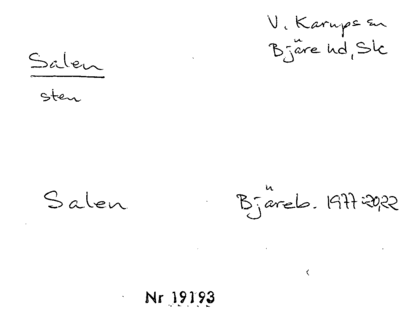 V. Karups sn
Bjäre hd, Sk
Salen
sten
Salen
Bjäreb. 1977:20,22
Nr 19193